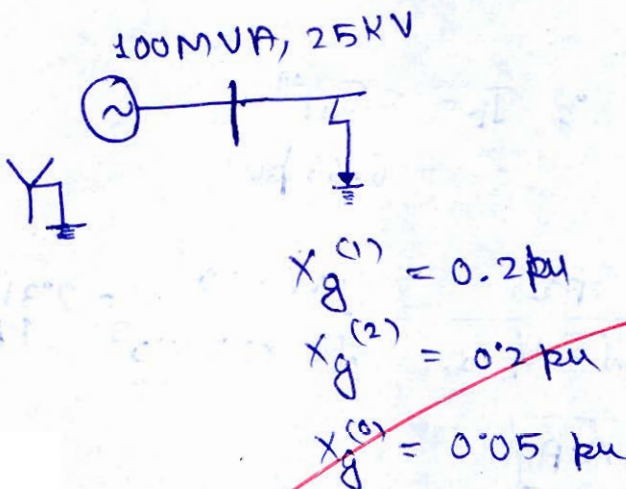 100MVA, 25KV
X_g^(1) = 0.2 pu
X_g^(2) = 0.2 pu
X_g^(0) = 0.05 pu